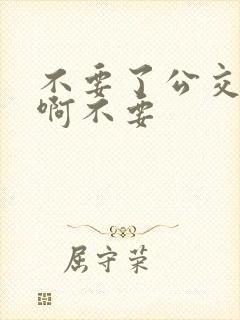 不要了公交
啊不要
屈守荣